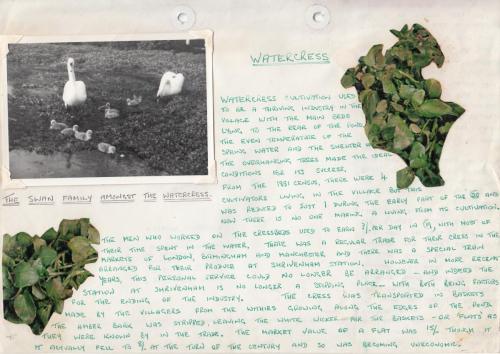 WATERCRESS
WATERCRESS CULTIVATION USED
TO BE A THRIVING INDUSTRY IN THE
VILLAGE WITH THE MAIN BEDS
LYING TO THE REAR OF THE POND.
THE EVEN TEMPERATURE OF THE
SPRING WATER AND THE SHELTER OF
THE OVERHANGING TREES MADE THE IDEAL
CONDITIONS FOR ITS SUCCESS.
FROM THE 1881 CENSUS, THERE WERE 4
CULTIVATORS LIVING IN THE VILLAGE BUT THIS
WAS REDUCED TO JUST 1 DURING THE EARLY PART OF THE AND
NOW THERE IS NO ONE MAKING A LIVING FROM ITS CULTIVATION.
THE SWAN FAMILY AMONGST THE WATERCRESS.
THE MEN WHO WORKED ON THE CRESSBEDS USED TO EARN PER DAY IN WITH MOST OF
THEIR TIME SPENT IN THE WATER, THERE WAS A REGULAR TRADE FOR THEIR CRESS IN THE
MARKETS OF LONDON, BIRMINGHAM AND MANCHESTER AND THERE WAS A SPECIAL TRAIN
ARRANGED FOR THEIR PRODUCE AT SHRIVENHAM STATION. HOWEVER IN MORE RECENT
YEARS, THIS PERSONAL SERVICE COULD NO LONGER BE ARRANGED - AND INDEED THE
STATION AT SHRIVENHAM IS NO LONGER A STOPPING PLACE - WITH BOTH BEING FACTORS
FOR THE ENDING OF THE INDUSTRY. THE CRESS WAS TRANSPORTED IN BASKETS
MADE BY THE VILLAGERS FROM THE WITHIES GROWING ALONG THE EDGES OF THE POND.
THE AMBER BARK WAS STRIPPED, LEAVING THE WHITE WICKER FOR THE BASKETS - OR 'FLATS' AS
THEY WERE KNOWN BY IN THE TRADE. THE MARKET VALUE OF A FLAT WAS 15/- THOUGH IT
IT ACTUALLY FELL TO AT THE TURN OF THE CENTURY AND SO WAS BECOMING UNECONOMIC.